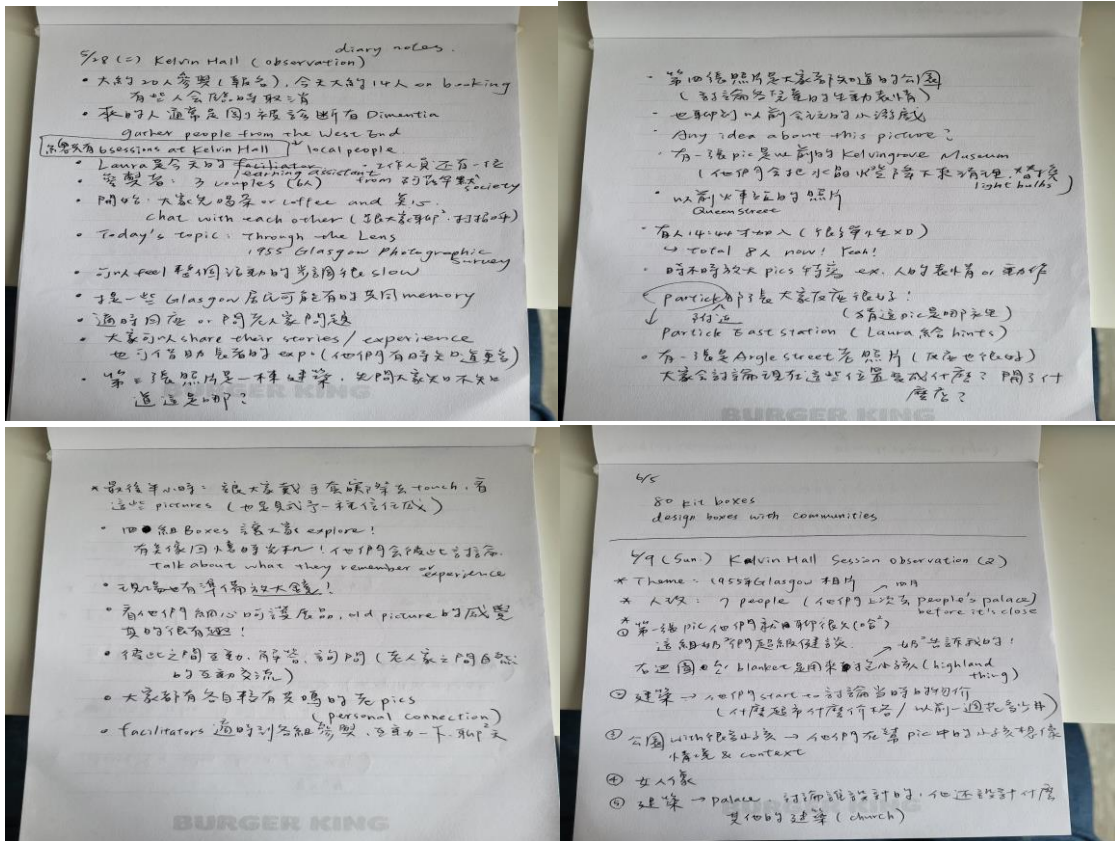 diary notes.
5/28 (二) Kelvin Hall (observation)
• 大約20人參與(報名), 今天大約14人 on booking
有些人会臨時取消
• 來的人通常是剛被診斷有 Dimentia
gather people from the West End
local people
6 sessions at Kelvin Hall
• Laura是今天的 facilitator
工作人員还有一位
learning assistant
from 阿茲海默 society
參與者: 3 couples (6人)
• 開始: 大家先喝茶 or coffee and 點心
chat with each other (跟大家聊²、打招呼)
• Today's topic: Through the Lens
1955 Glasgow Photographic Survey
• 可以feel 整個活動的步調很 slow
• 挑一些 Glasgow 居民可能有的共同 memory
• 適時回應 or 問老人家問題
• 大家可以 share their stories / experience
也可借助長者的 exp. (他們有時知道更多)
• 第一張照片是一棟建築, 先問大家知不知
道這是哪?
• 第四張照片是大家都知道的公園
(討論各兒童的生動表情)
• 也聊到以前会玩的小游戏
• Any idea about this picture?
• 有一張pic是以前的 Kelvingrove Museum
(他們会把水晶燈降下來清理, 替換
light bulbs)
• 以前火車站的照片
Queen street
• 有人14:44才加入 (很多學生XD)
↳ total 8人 now! Yeah!
• 時不時放大 pics 特寫 ex. 人的表情 or 動作
• Partick 那張大家反應很好!
附近
(猜這pic是哪衣里)
Partick East station (Laura給hints)
• 有一張是 Argle street 老照片 (反應也很好)
大家会討論現在這些位置變成什麼? 開了什
麼店?
BURGER KING
* 最後半小時: 讓大家戴手套實際去touch, 看
這些 pictures (也是給予一種信任感)
• 四組 Boxes 讓大家 explore!
有点像回憶時光机! 他們会彼此討論.
talk about what they remember or experience
• 現場也有準備放大鏡!
• 看他們細心呵護展品, old picture 的感覺
真的很有趣!
• 彼此之間互動、解答、詢問 (老人家之間自然
的互動交流)
• 大家都有各自較有共鳴的老 pics
(personal connection)
• facilitators 適時到各組參與, 互動一下、聊²天
BURGER KING
6/5
80 kit boxes
design boxes with communities
6/9 (Sun.) Kelvin Hall Session observation (2)
* Theme: 1955年Glasgow 相片
四月
* 人数: 7 people (他們上次去 people's palace)
before it's close
* ① 第一張pic他們就聊很久 (哈²)
這組奶²們超級健談.
奶²告訴我的!
右边圍 blanket 是用來包小孩 (highland
thing)
② 建築 → 他們 start to 討論当時的物价
(什麼超市什麼价格 / 以前一週花多少)
③ 公園 with 很多小孩 → 他們在幫 pic 中的小孩想像
情境 & context
④ 女人像
⑤ 建築 → palace 討論誰設計的, 他还設計什麼
其他的建築 (church)
BURGER KING